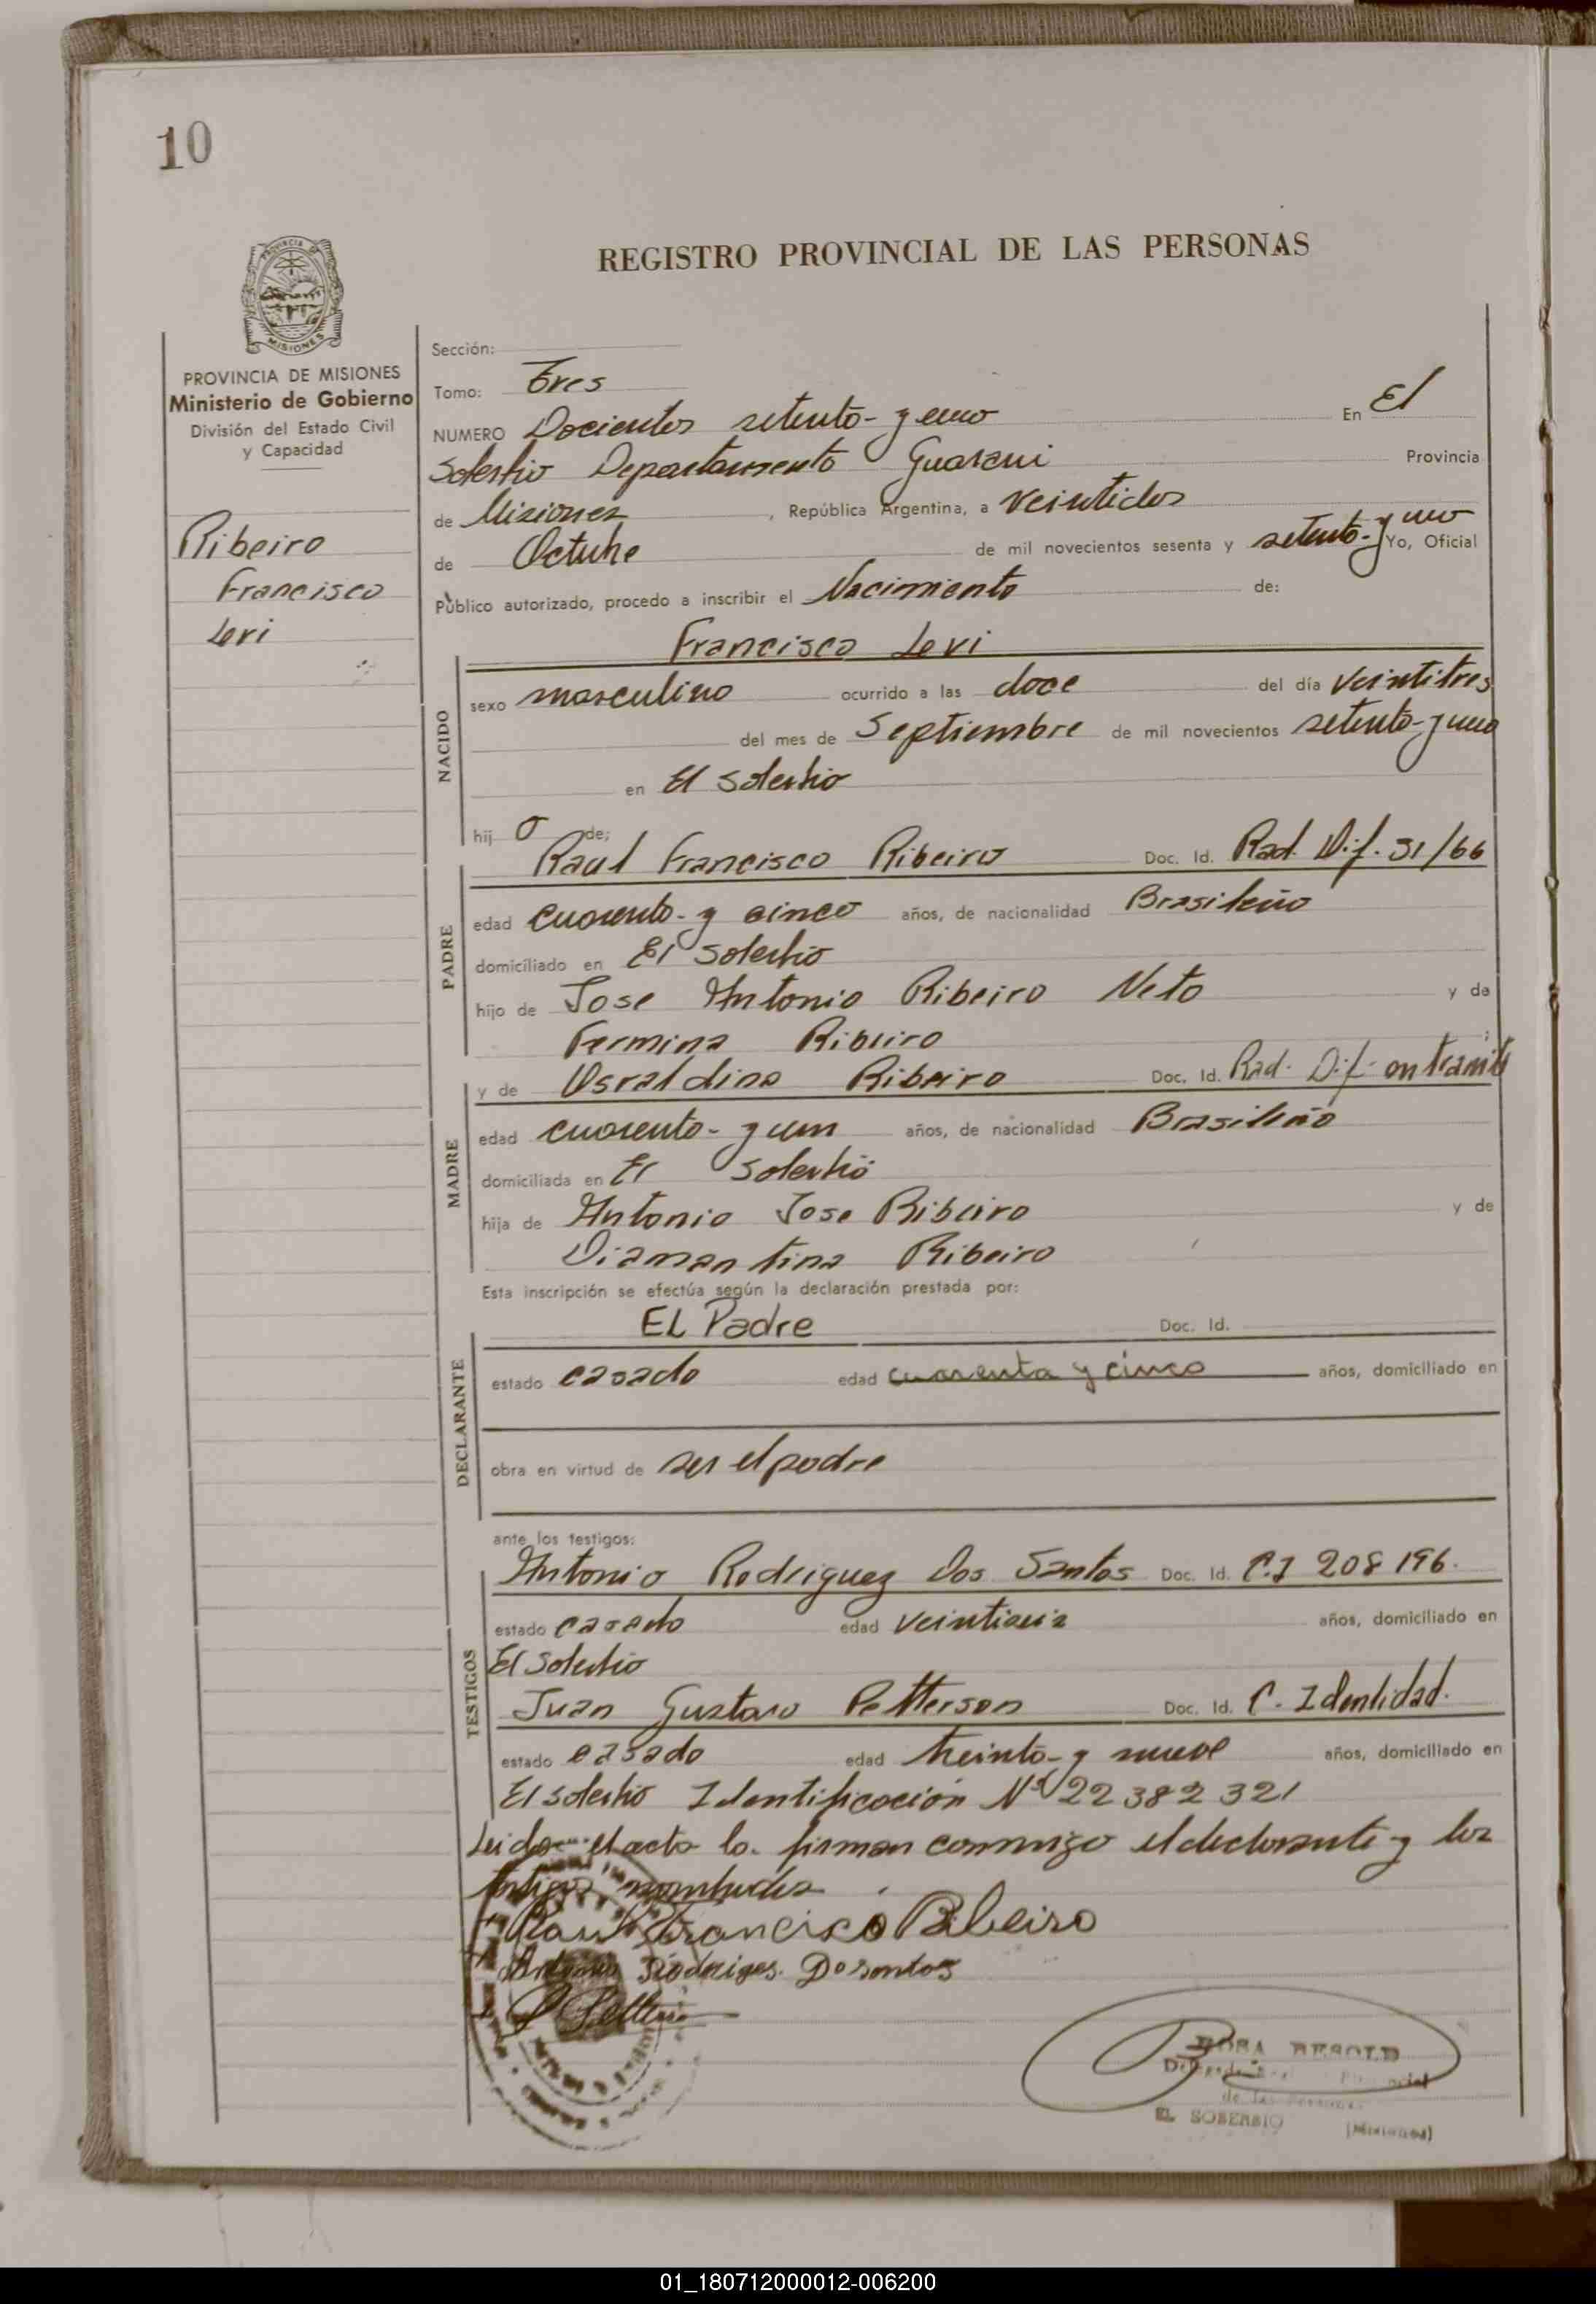 10
REGISTRO PROVINCIAL DE LAS PERSONAS
PROVINCIA DE MISIONES
PROVINCIA DE MISIONES
Ministerio de Gobierno
División del Estado Civil
y Capacidad
Ribeiro
Francisco
Levi
Sección:
Tomo: Tres
NUMERO Docientos setenta-y uno En El
Soberbio Departamento Guarani Provincia
de Misiones, República Argentina, a veintidos
de Octubre de mil novecientos sesenta y setenta-y uno Yo, Oficial
Público autorizado, procedo a inscribir el Nacimiento de:
Francisco Levi
NACIDO
sexo masculino ocurrido a las doce del día veintitres
del mes de Septiembre de mil novecientos setenta-y uno
en El Soberbio
hij o de;
PADRE
Raul Francisco Ribeiro Doc. Id. Rad. Dif. 31/66
edad cuarenta-y cinco años, de nacionalidad Brasileño
domiciliado en El Soberbio
hijo de Jose Antonio Ribeiro Neto y de
Fermina Ribeiro ;
MADRE
y de Osvaldina Ribeiro Doc. Id. Rad. Dif. en tramite
edad cuarenta-y un años, de nacionalidad Brasileño
domiciliada en El Soberbio
hija de Antonio Jose Ribeiro y de
Diamantina Ribeiro
Esta inscripción se efectúa según la declaración prestada por:
DECLARANTE
EL Padre Doc. Id.
estado casado edad cuarenta y cinco años, domiciliado en
obra en virtud de ser el padre
ante los testigos:
TESTIGOS
Antonio Rodriguez Dos Santos Doc. Id. C.I 208 196.
estado casado edad años, domiciliado en
El Soberbio
Juan Gustavo Petterson Doc. Id. C. Identidad.
estado casado edad treinta-y nueve años, domiciliado en
El Soberbio Identificación Nº 22 382 321
Leida el acta la firman conmigo el declarante y los
testigos nombrados
Raul Francisco Ribeiro
Antonio Rodriges Dosontos
ROSA BESOLD
de las Personas
EL SOBERBIO (Misiones)
01_180712000012-006200